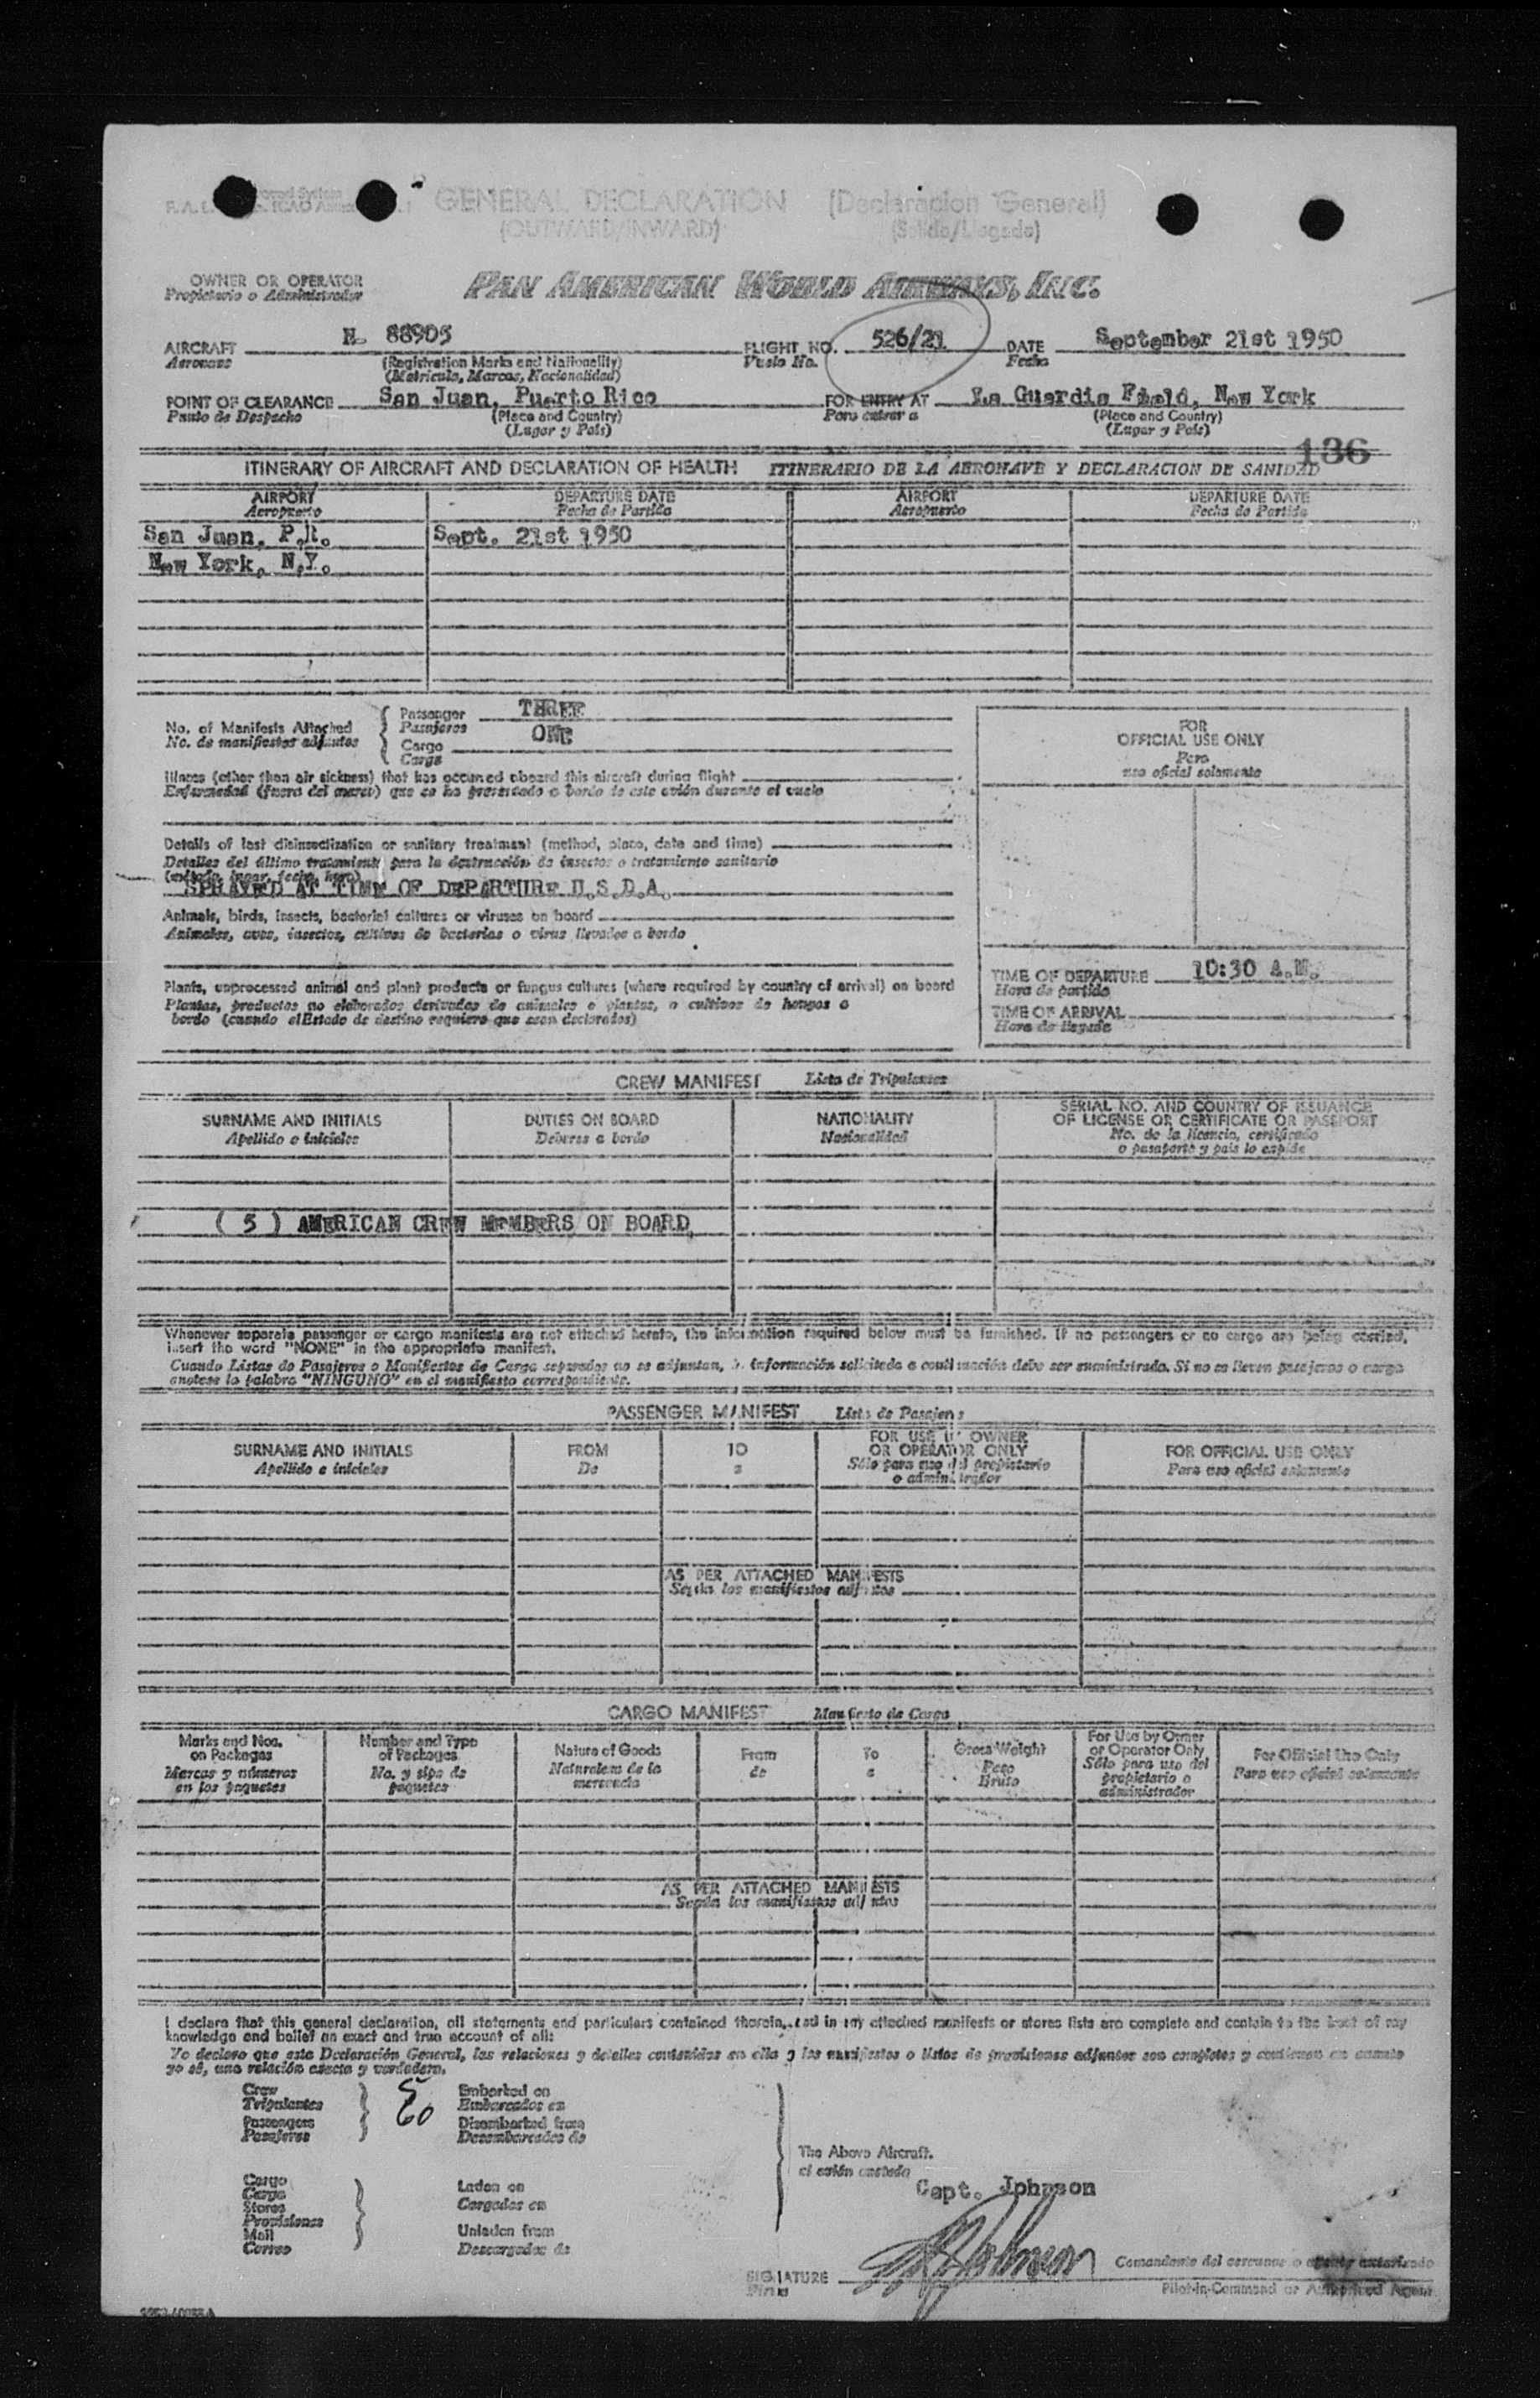 GENERAL DECLARATION (Declaracion General)
(OUTWARD/INWARD) (Salida/Llegada)
OWNER OR OPERATOR
Propietario o Administrador
PAN AMERICAN WORLD AIRWAYS, INC.
AIRCRAFT N- 88905 FLIGHT NO. 526/21 DATE September 21st 1950
Aeronave (Registration Marks and Nationality) Vuelo No. Fecha
(Matricula, Marcas, Nacionalidad)
POINT OF CLEARANCE San Juan, Puerto Rico FOR ENTRY AT La Guardia Field, New York
Punto de Despacho (Place and Country) Para entrar a (Place and Country)
(Lugar y Pais) (Lugar y Pais)
136
ITINERARY OF AIRCRAFT AND DECLARATION OF HEALTH ITINERARIO DE LA AERONAVE Y DECLARACION DE SANIDAD
AIRPORT DEPARTURE DATE AIRPORT DEPARTURE DATE
Aeropuerto Fecha de Partida Aeropuerto Fecha de Partida
San Juan, P.R. Sept. 21st 1950
New York, N.Y.
No. of Manifests Attached
No. de manifiestos adjuntos
Passenger THREE
Pasajeros
Cargo ONE
Carga
FOR
OFFICIAL USE ONLY
Para
uso oficial solamente
Illness (other than air sickness) that has occurred aboard this aircraft during flight
Enfermedad (fuera del mareo) que se ha presentado a bordo de este avión durante el vuelo
Details of last disinsectization or sanitary treatment (method, place, date and time)
Detalles del último tratamiento para la destrucción de insectos o tratamiento sanitario
(método, lugar, fecha, hora)
SPRAYED AT TIME OF DEPARTURE U.S.D.A.
Animals, birds, insects, bacterial cultures or viruses on board
Animales, aves, insectos, cultivos de bacterias o virus llevados a bordo
Plants, unprocessed animal and plant products or fungus cultures (where required by country of arrival) on board
Plantas, productos no elaborados derivados de animales o plantas, o cultivos de hongos a
bordo (cuando el Estado de destino requiere que sean declarados)
TIME OF DEPARTURE 10:30 A.M.
Hora de partida
TIME OF ARRIVAL
Hora de llegada
CREW MANIFEST Lista de Tripulantes
SURNAME AND INITIALS DUTIES ON BOARD NATIONALITY SERIAL NO. AND COUNTRY OF ISSUANCE
OF LICENSE OR CERTIFICATE OR PASSPORT
Apellido e iniciales Deberes a bordo Nacionalidad No. de la licencia, certificado
o pasaporte y pais lo expide
( 5 ) AMERICAN CREW MEMBERS ON BOARD
Whenever separate passenger or cargo manifests are not attached hereto, the information required below must be furnished. If no passengers or no cargo are being carried,
insert the word "NONE" in the appropriate manifest.
Cuando Listas de Pasajeros o Manifiestos de Carga separados no se adjuntan, la información solicitada a continuación debe ser suministrada. Si no se lleven pasajeros o carga
anotese la palabra "NINGUNO" en el manifiesto correspondiente.
PASSENGER MANIFEST Lista de Pasajeros
SURNAME AND INITIALS FROM TO FOR USE BY OWNER
OR OPERATOR ONLY FOR OFFICIAL USE ONLY
Apellido e iniciales De a Sólo para uso del propietario
o administrador Para uso oficial solamente
AS PER ATTACHED MANIFESTS
Según los manifiestos adjuntos
CARGO MANIFEST Manifiesto de Carga
Marks and Nos.
on Packages
Marcas y números
en los paquetes
Number and Type
of Packages
No. y tipo de
paquetes
Nature of Goods
Naturaleza de la
mercancia
From
de
To
a
Gross Weight
Peso
Bruto
For Use by Owner
or Operator Only
Sólo para uso del
propietario o
administrador
For Official Use Only
Para uso oficial solamente
AS PER ATTACHED MANIFESTS
Según los manifiestos adjuntos
I declare that this general declaration, all statements and particulars contained therein, and in my attached manifests or stores lists are complete and contain to the best of my
knowledge and belief an exact and true account of all:
Yo declaro que esta Declaración General, las relaciones y detalles contenidos en ella y los manifiestos o listas de provisiones adjuntos son completos y contienen en cuanto
yo sé, una relación exacta y verdadera.
Crew 5 Embarked on
Tripulantes Embarcados en
Passengers 60 Disembarked from
Pasajeros Desembarcados de
The Above Aircraft.
el avión anotado
Cargo
Carga
Stores
Provisiones
Mail
Correo
Laden on
Cargados en
Unladen from
Descargados de
Capt. Johnson
SIGNATURE Johnson Comandante del aeronave o agente autorizado
Firma Pilot-in-Command or Authorized Agent